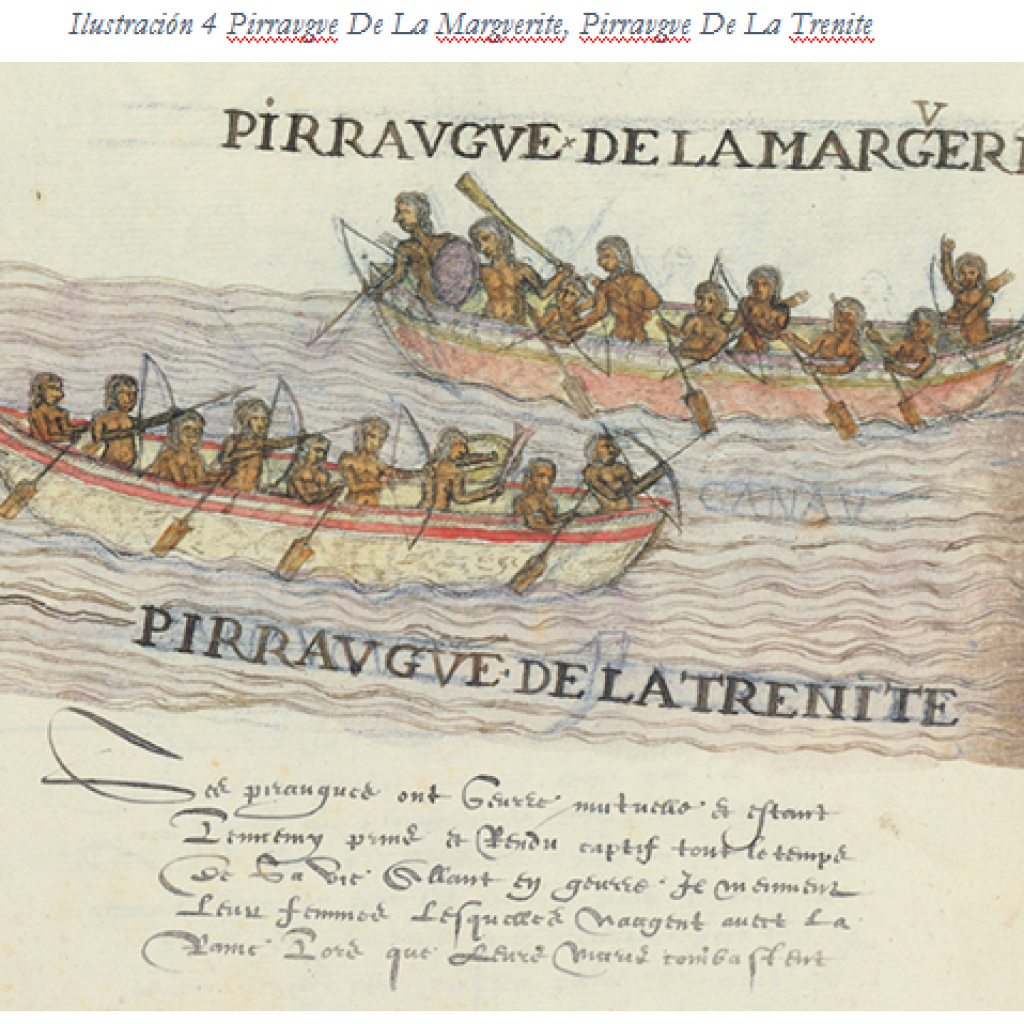 Ilustración 4 Pirravgve De La Margverite, Pirravgve De La Trenite
PIRRAVGVE DE LA MARGVERI
CANAV
PIRRAVGVE·DE LA TRENITE
Les piraugues ont Guerre mutuelle et estant
Lennemy prins et Rendu captif tout le temps
De Sa vie Allant en guerre Ilz meinnent
Leur femmes Lesquelles Naagent avect La
Rame Lors que Leurs Maris combastent